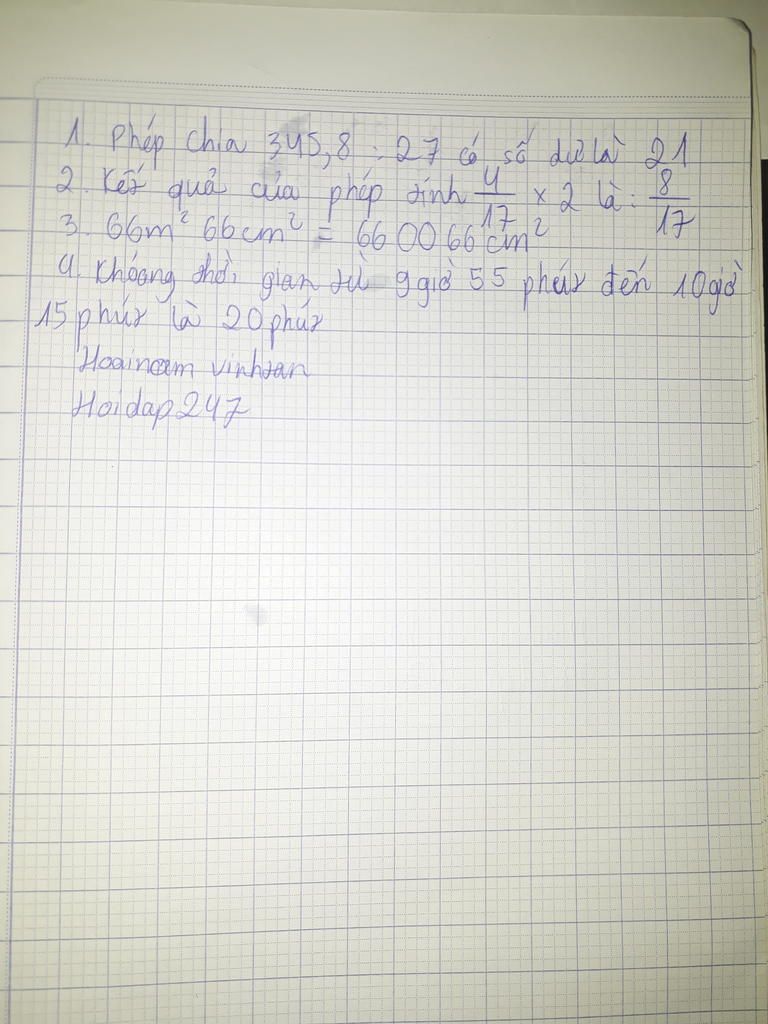 1. Phép chia 345,8 : 27 có số dư là 21
2. Kết quả của phép tính 4/17 x 2 là: 8/17
3. 66m² 66cm² = 660066cm²
4. Khoảng thời gian từ 9giờ 55 phút đến 10giờ
15 phút là 20phút
Hoainam vinhtan
Hoidap247